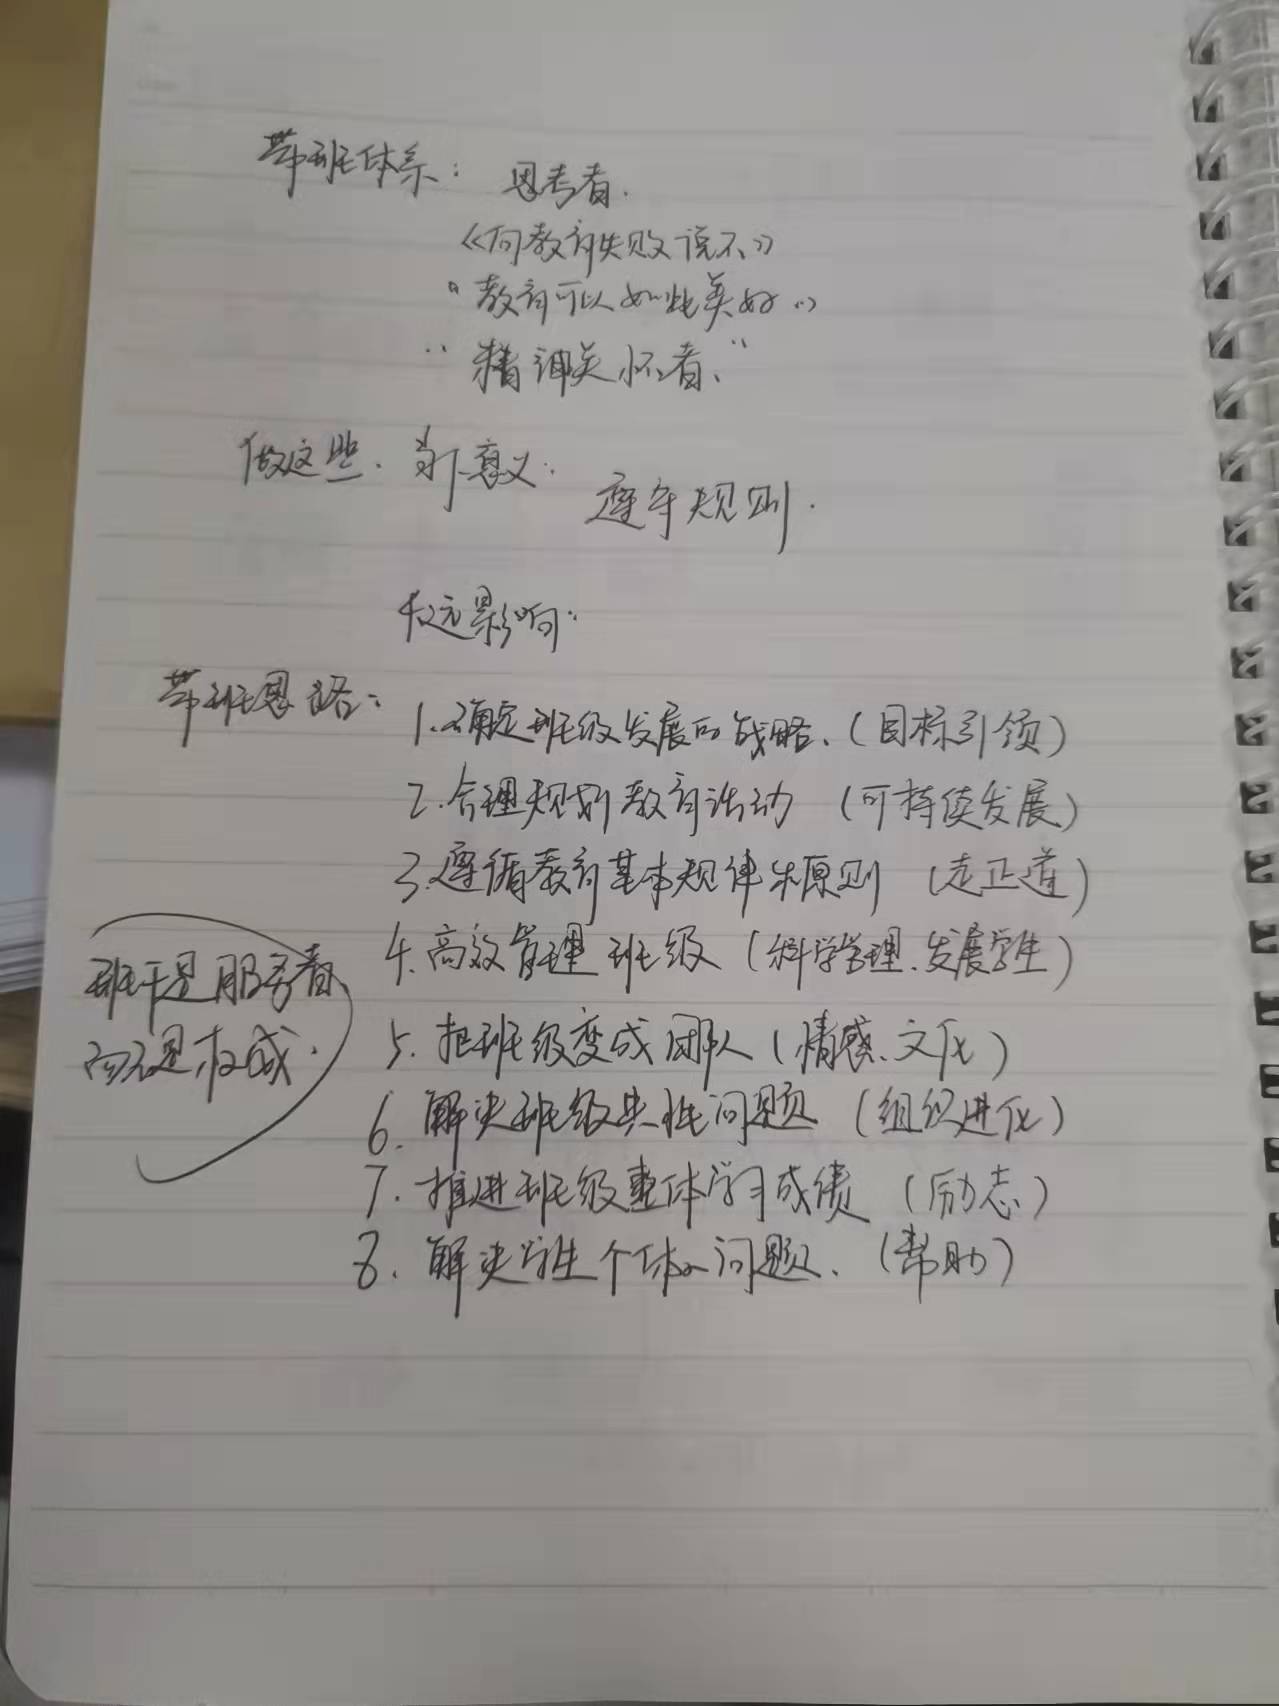 带班体系： 思考者.
《向教育失败说不》
"教育可以如此美好"
"精神关怀者."
做这些. 当下意义：
遵守规则.
长远影响：
带班思路：
1.确定班级发展的战略.（目标引领）
2.合理规划教育活动 （可持续发展）
3.遵循教育基本规律和原则 （走正道）
4.高效管理班级（科学管理.发展学生）
班干是服务者
而不是权威.
5.把班级变成团队（情感.文化）
6.解决班级共性问题 （组织进化）
7.推进班级整体学习成绩 （励志）
8.解决学生个体问题.（帮助）